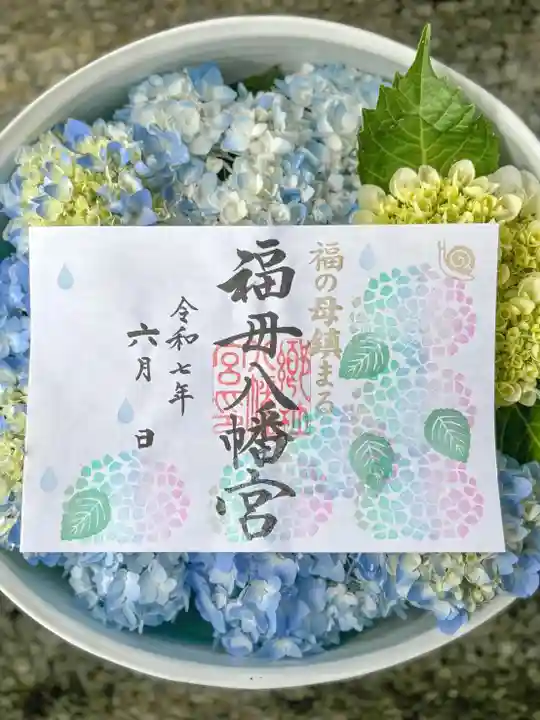 福の母鎮まる
福母八幡宮
令和七年
六月 日